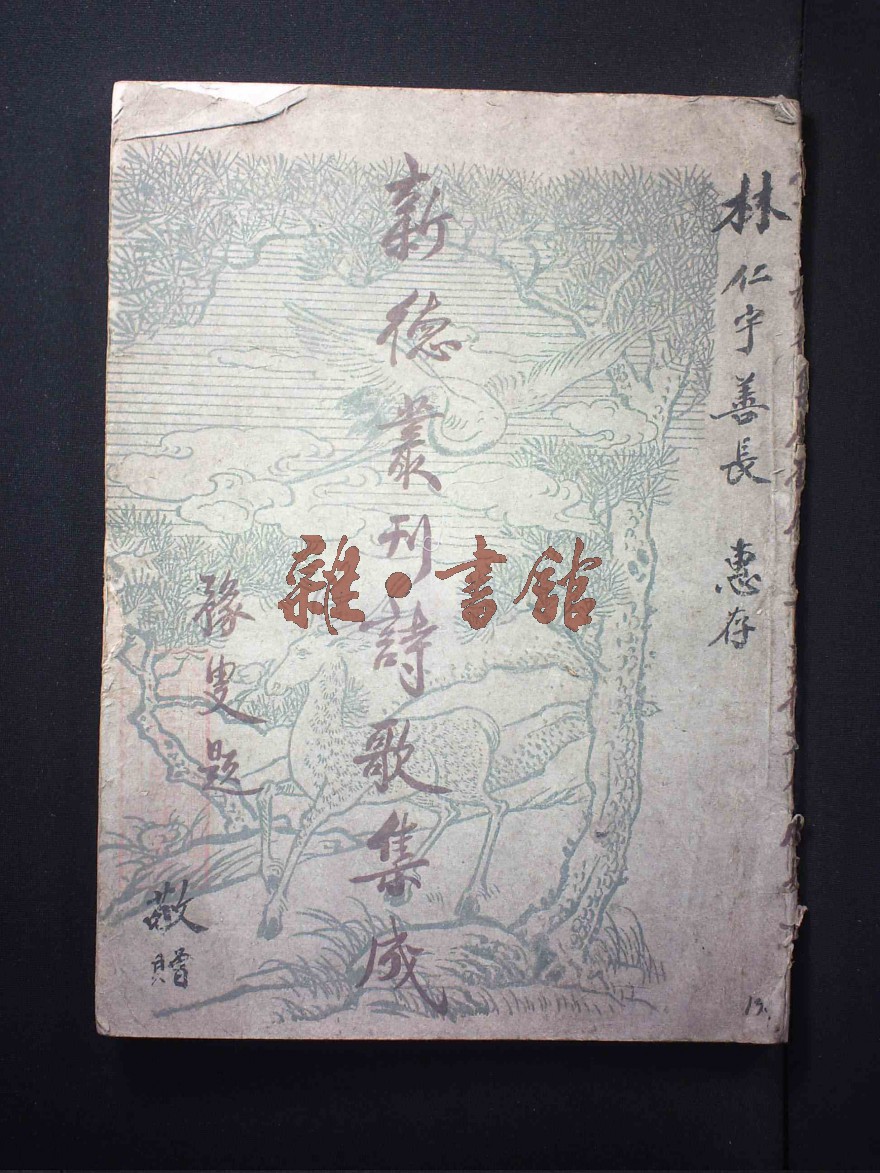 林仁宇善長 惠存
新德叢刊詩歌集成
豫叟題
敬贈
雜·書館